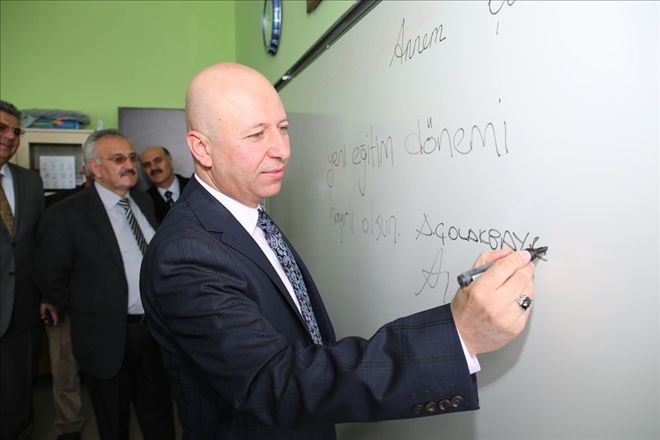 Annem
yeni eğitim dönemi
hayırlı olsun. AÇOLAKBAY